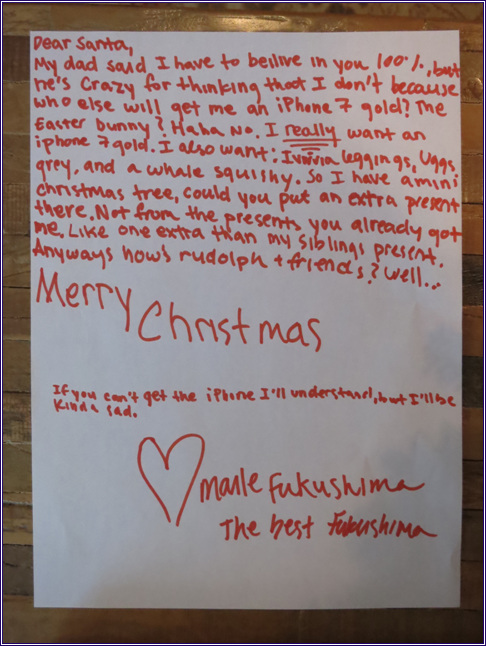 Dear Santa,
My dad said I have to beilive in you 100%, but
he's crazy for thinking that I don't because
who else will get me an iPhone 7 gold? The
Easter bunny? Haha No. I really want an
iphone 7 gold. I also want: Ivivvia leggings, Uggs
grey, and a whale squishy. So I have a mini
christmas tree, could you put an extra present
there. Not from the presents you already got
me. Like one extra than my siblings present.
Anyways how's rudolph + friends? Well...
Merry
Christmas
If you can't get the iPhone I'll understand, but I'll be
kinda sad.
Fukushima
The best Fukushima